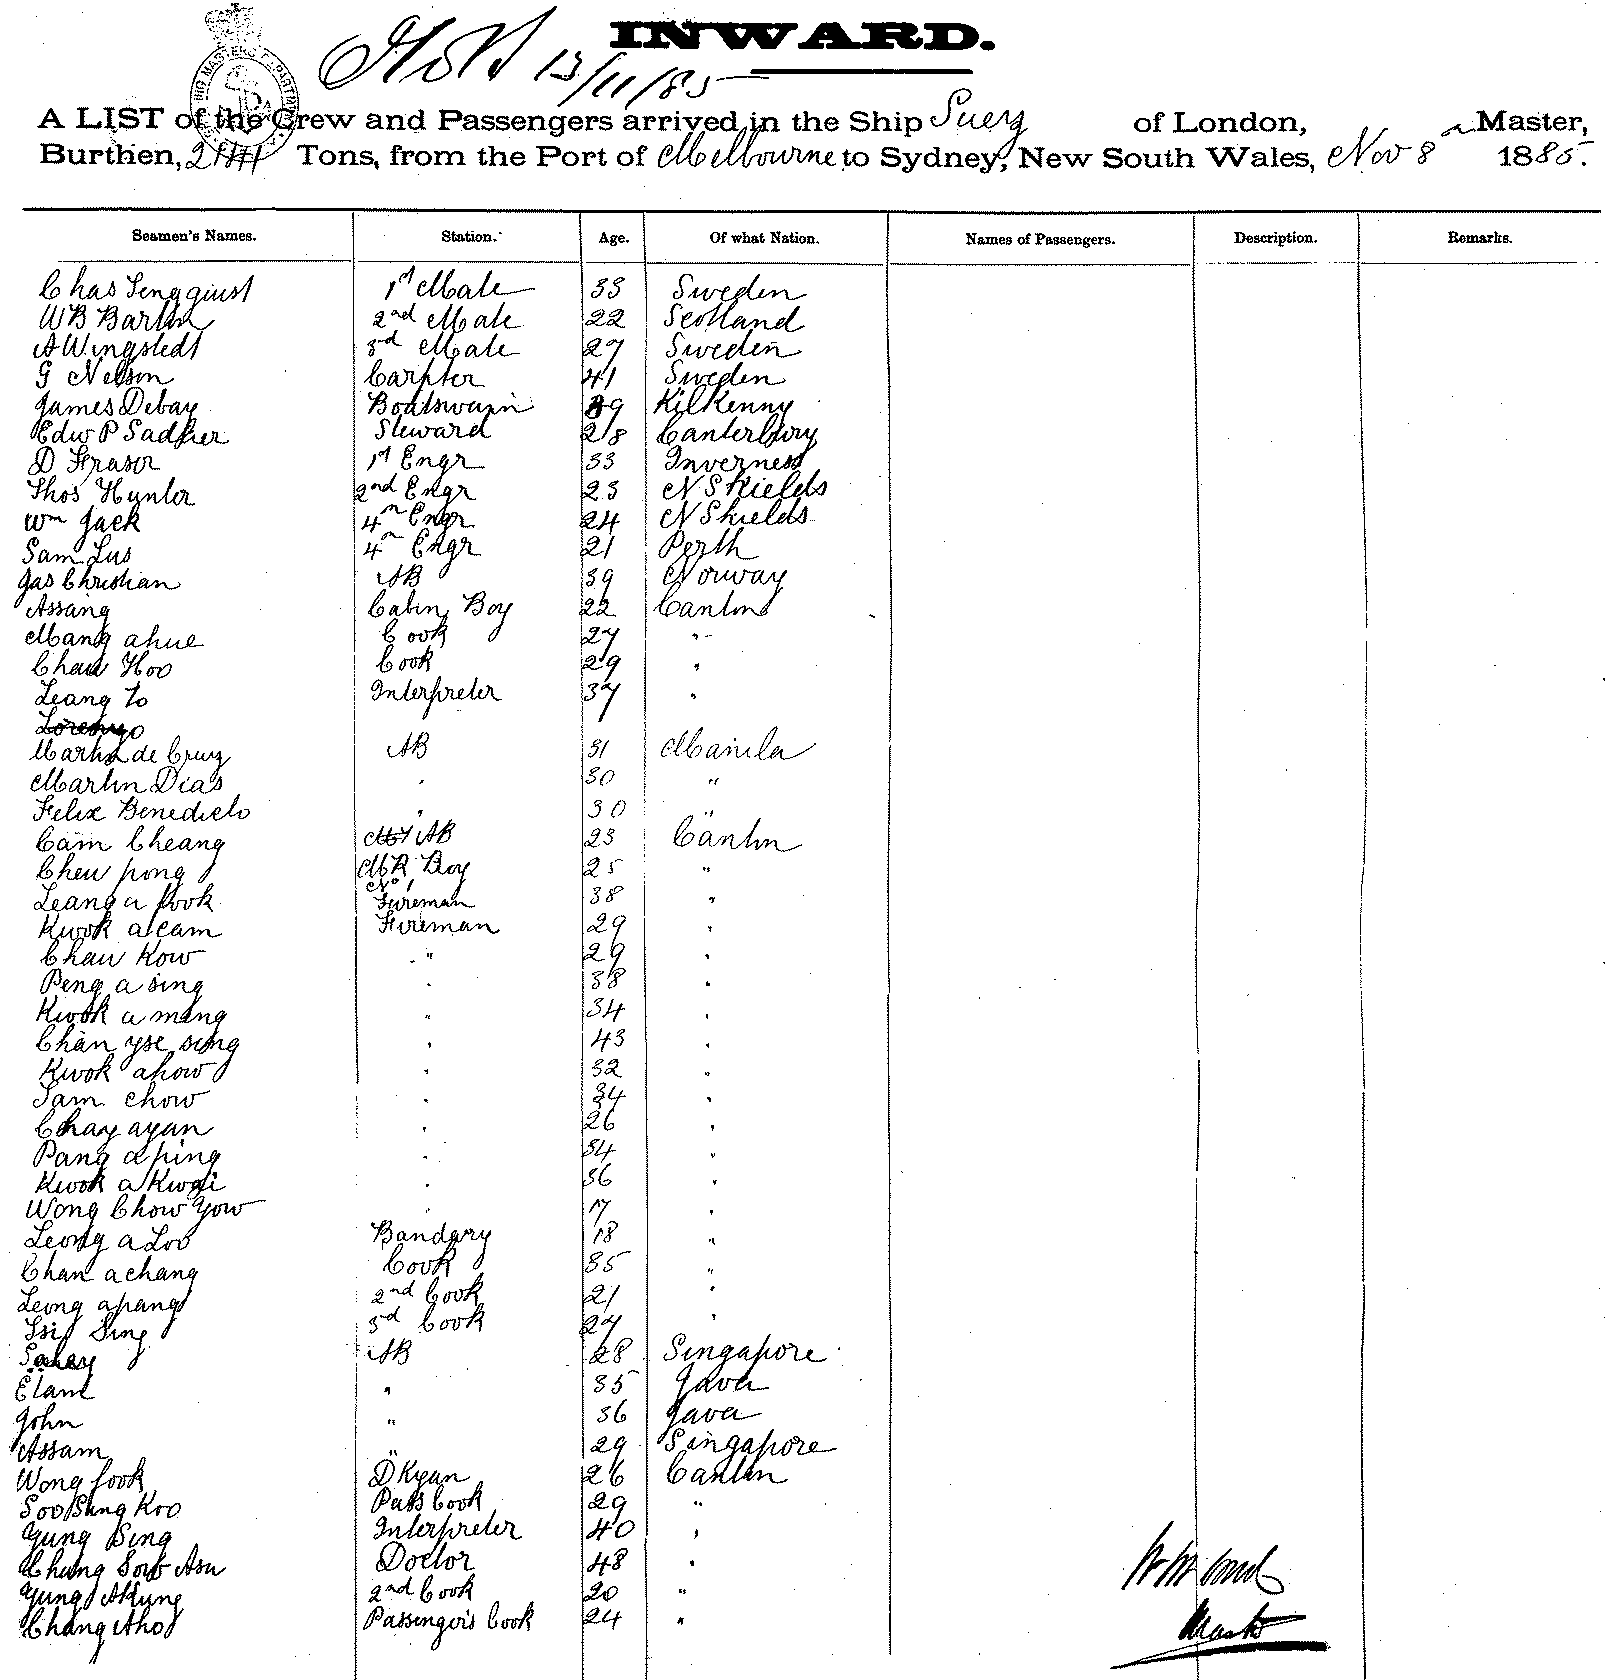 INWARD.
13/11/85
A LIST of the Crew and Passengers arrived in the Ship Suez of London, Master,
Burthen, Tons, from the Port of Melbourne to Sydney, New South Wales, Nov 8 1885.
Seamen's Names. Station. Age. Of what Nation. Names of Passengers. Description. Remarks.
Chas 1st Mate 33 Sweden
WB Bartin 2nd Mate 22 Scotland
A Wingstedt 3rd Mate 27 Sweden
G Nelson Carpter 41 Sweden
James Debay Boatswain 39 Kilkenny
Edw P Sadher Steward 28 Canterbury
D Fraser 1st Engr 33 Inverness
Thos Hunter 2nd Engr 23 N Shields
Wm Jack 4th Engr 24 N Shields
Sam Lus 4th Engr 21 Perth
Jas Christian AB 39 Norway
Assang Cabin Boy 22 Canton
Mang ahue Cook 27 "
Chau Hoo Cook 29 "
Leang To Interpreter 37 "
Lorenzo
Martin de Cruz AB 31 Manila
Martin Dias " 30 "
Felix Benedicto " 30 "
Cam Cheang AB 23 Canton
Cheu pong MR Boy 25 "
Leang a Kook No 1 Fireman 38 "
Kwok a cam Fireman 29 "
Chau Kow " 29 "
Peng a sing " 38 "
Kwok a ming " 34 "
Chan yse sung " 43 "
Kwok ahow " 32 "
Sam chow " 34 "
Chay ayan " 26 "
Pang a ping " 34 "
Kwok a Kwai " 36 "
Wong Chow Yow " 17 "
Leong a Loo Bandary 18 "
Chan achang Cook 35 "
Leong apang 2nd Cook 21 "
Tsip Sing 3rd Cook 27 "
AB 28 Singapore
Elam " 35 Java
John " 36 Java
Assam " 29 Singapore
Wong fook DKyan 26 Canton
Soo Sung Koo Pass Cook 29 "
Yung Sing Interpreter 40 "
Chung Sow Asu Doctor 48 "
Yung AKung 2nd Cook 20 "
Chang Aho Passenger's Cook 24 "
Master